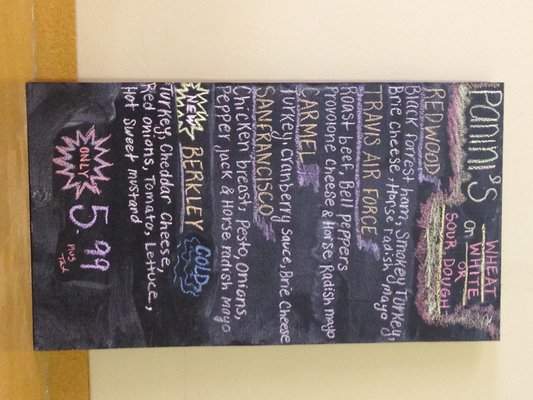 PANINI'S
WHEAT
OR WHITE
OR
SOUR DOUGH
REDWOOD
Black forrest ham, Smokey Turkey,
Brie cheese, Horse radish mayo
TRAVIS AIR FORCE
Roast beef, Bell peppers
Provolone cheese & Horse Radish mayo
CARMEL
Turkey, cranberry sauce, Brie Cheese
SANFRANCISCO
Chicken breast, Pesto, Onions,
Pepper jack & Horse radish Mayo
NEW BERKLEY COLD
Turkey, Cheddar Cheese,
Red onions, Tomato, Lettuce,
Hot Sweet mustard
ONLY 5.99 Plus Tax